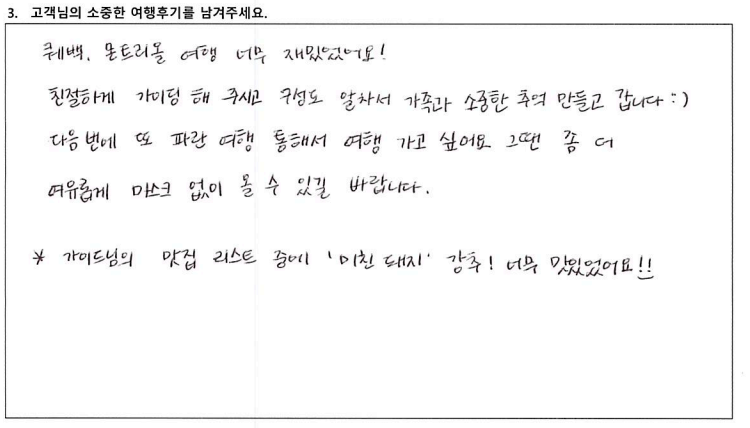 3. 고객님의 소중한 여행후기를 남겨주세요.
퀘백, 몬트리올 여행 너무 재밌었어요!
친절하게 가이딩 해 주시고 구성도 알차서 가족과 소중한 추억 만들고 갑니다 :)
다음번에 또 파란 여행 통해서 여행 가고 싶어요 그땐 좀 더
여유롭게 마스크 없이 올 수 있길 바랍니다.
* 가이드님의 맛집 리스트 중에 '미친 돼지' 강추! 너무 맛있었어요!!